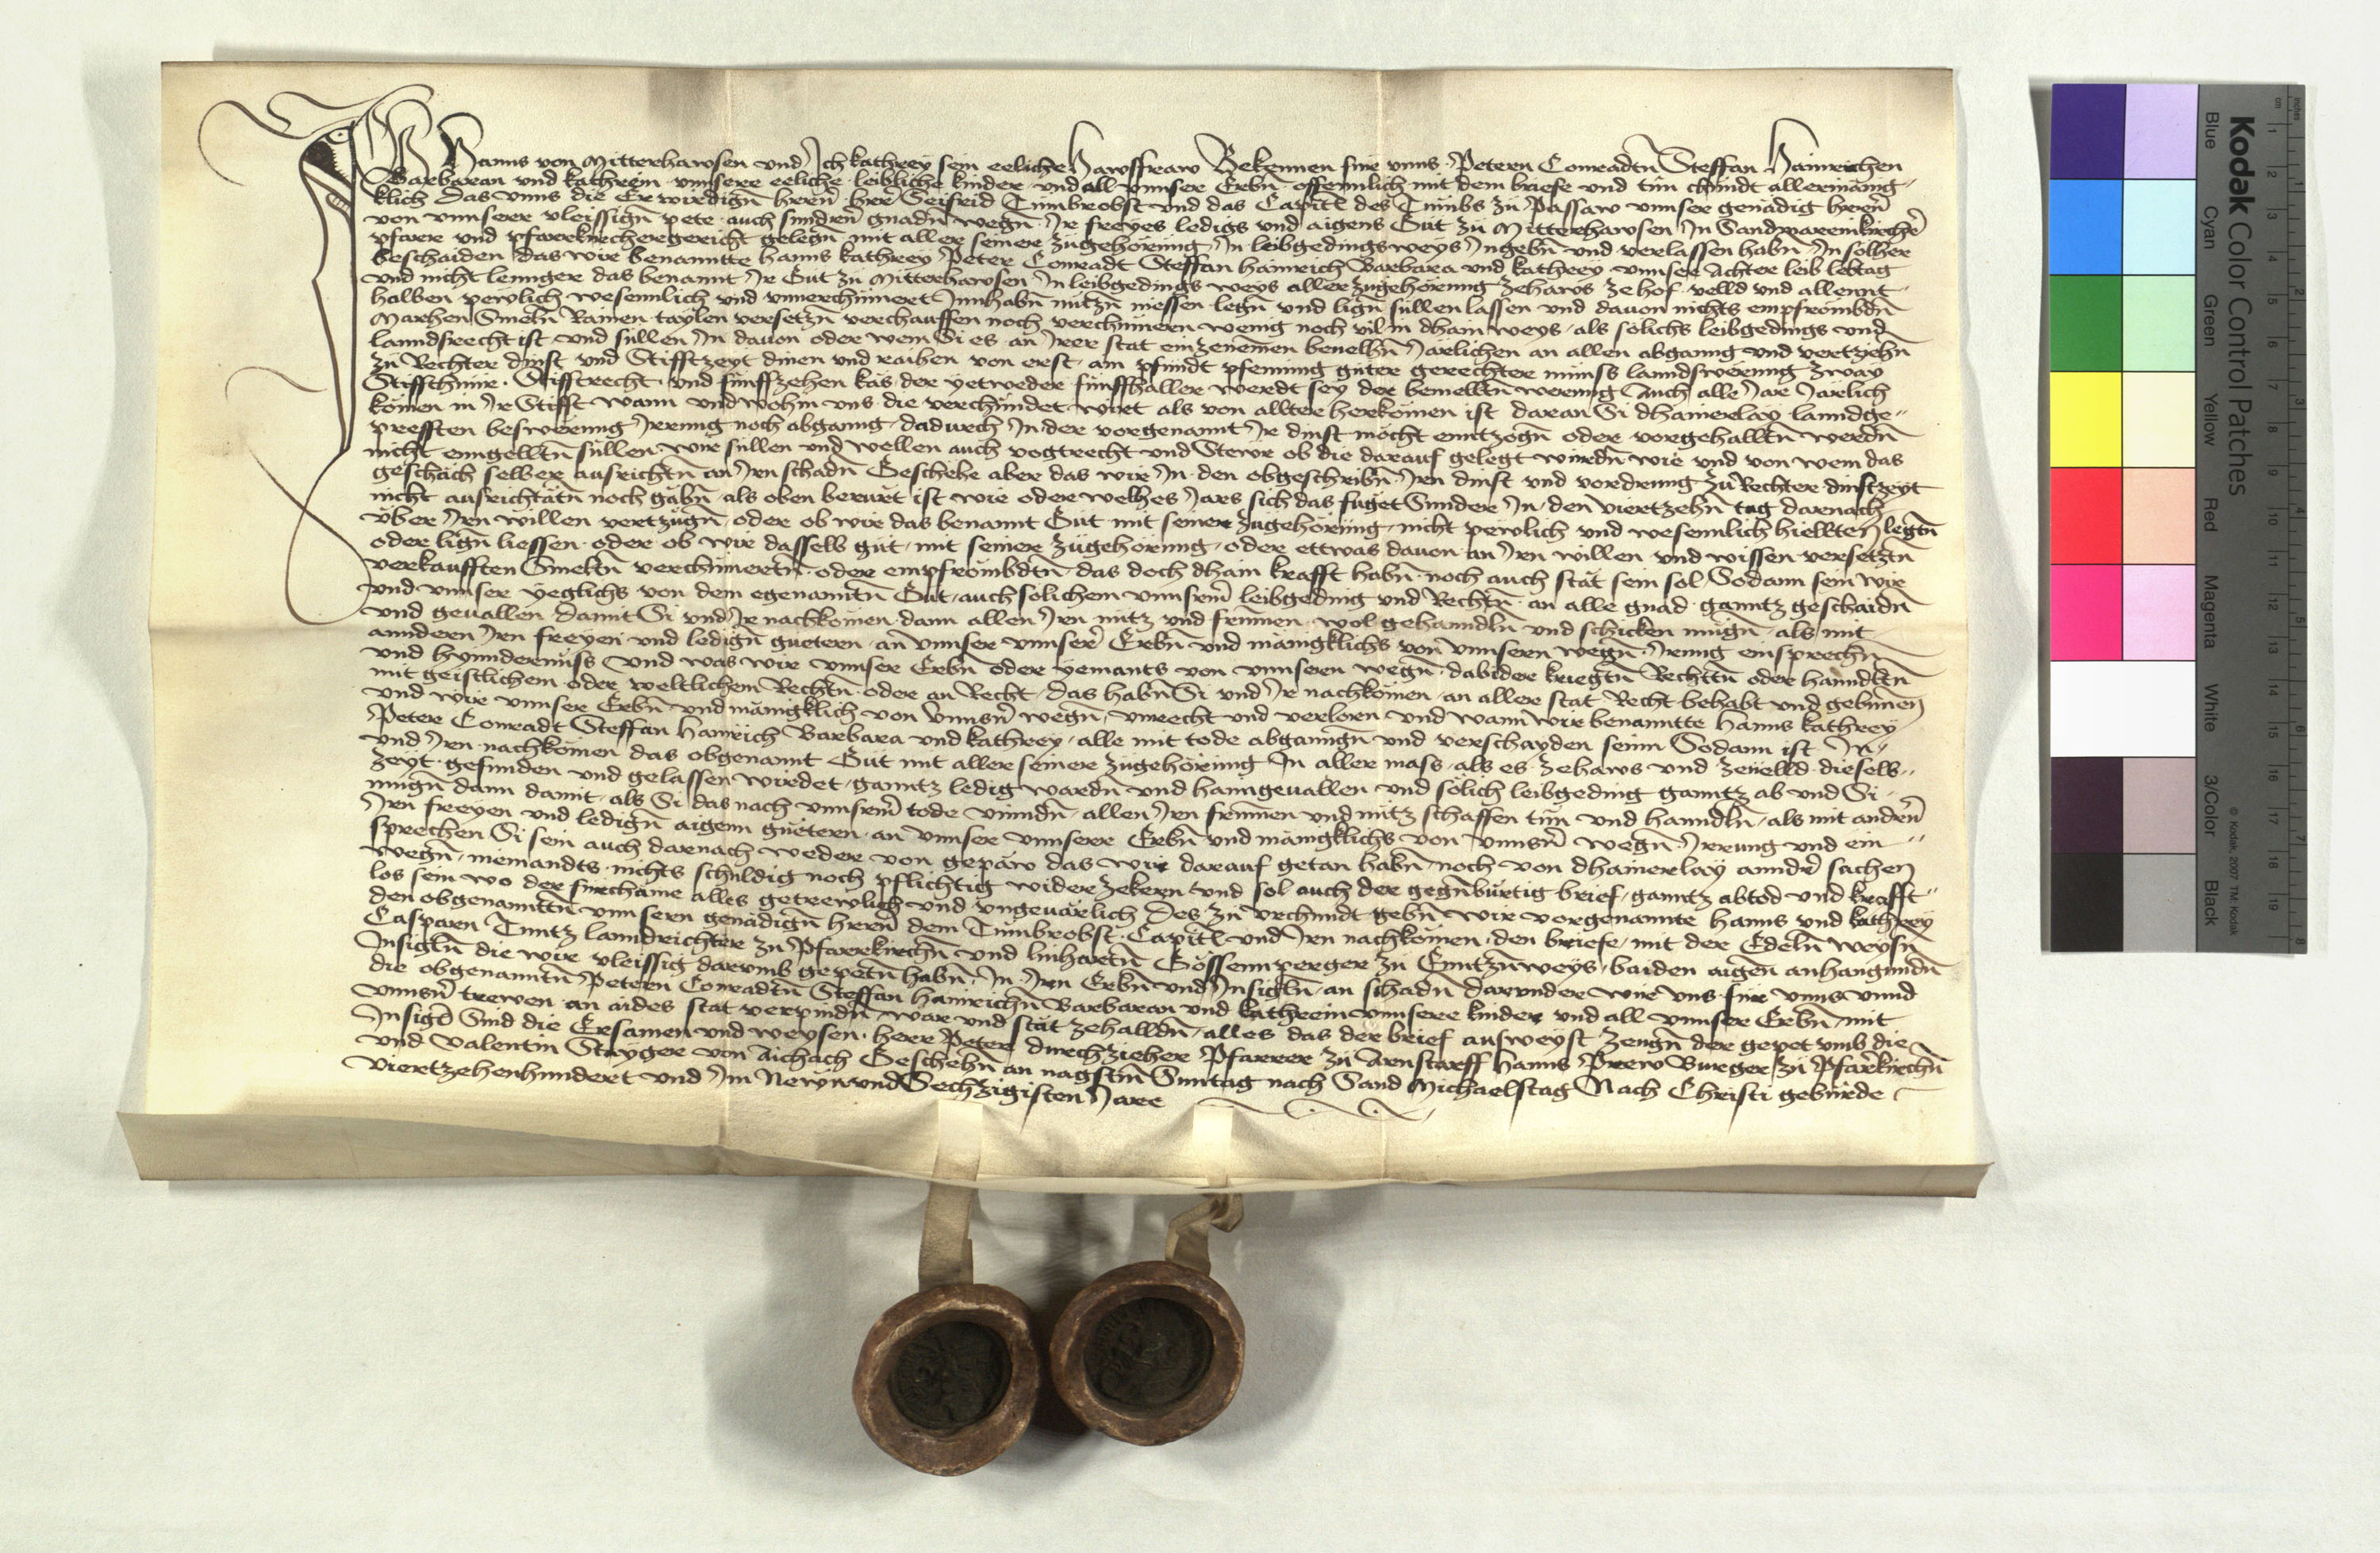 ICh Hanns von Mitterhawsen und Ich kathrey sein eeliche Hawsfraw Bekennen fur vnns Petern Conradtn Steffan Hainreichen
Barbaran und kathrein vnnsere eeliche leibliche kinder und all vnnser Erbn offennlich mit dem briefe und tun chundt allermanig
klich Das vnns die Erwirdign hern her Seifrid Tumbrobst und das Capitl des Tumbs zu Passaw vnnser genadig hern
von vnnserer vleissign pete auch sundren gnadn wegn Ir freyes ledigs und aigens Gut zu Mitterhawsen In Sandmareinkircher
pfarr und pfarrkirchergericht gelegn mit aller seiner zugehorung In leibgedingsweys Ingebn und verlassen habn In solher
beschaiden das wir benanntte hanns kathrey Peter Conradt Steffan hainrich Barbara und kathrey vnnser Achter leib lebtag
und nicht lennger das benannt Ir Gut zu Mitterhawsen In leibgedings weys aller zugehorung zehaws zehof velld und allennt
halben pewlich wesennlich und vnuerchumert Innhabn nutzn niessen legn und lign sullen lassen und davon nichts empfrömbdn
Marhen Smeln Rainen taylen versetzn verchauffen noch verchumern wenig noch vil in dhain weys als solichs leibgedings und
lanndsrecht ist und sullen In davon oder wem Si es an Irer stat einzenemen benelhn Järlichen an allen abganng und vertziehn
zu Rechter dinst und Stifftzeyt dinen und raihen von erst ain pfundt pfening guter gerechter munss lanndswerung zway
Stiffthuner Stifftrecht und funffzehen kas der yetweder funffhaller werdt sey der bemellten werung Auch alle Jar Järlich
komen in Ir Stifft wann und wohin vns die verchundet wirt als von allter herkomen ist daran Si dhainerlay lanndge
pressten beswerung Irrung noch abganng dadurch In der vorgenannt Ir dinst möcht enntzogn oder vorgehalltn werdn
nicht enngelltn sullen wir sullen und wellen auch vogtrecht und Stewr ob die darauf gelegt wurdn wie und von wem das
geschach selber ausrichtn an Irn schadn Geschehe aber das wir In den obgeschribn Irn dinst und vordrung zu Rechter dinstzeyt
nicht ausrichtätn noch gäbn als oben berurt ist wie oder welhes Jars sich das fuget Sunder In den viertzehn tag darnach
uber Irn willen vertzugn oder ob wir das benannt Gut mit seiner zugehörung nicht pewlich und wesennlich hiellten legtn
oder lign liessen oder ob wir dasselb gut mit seiner zugehörung oder ettwas davon an Irn willen und wissen versetztn
verkaufften Smeltn verchumertn oder empfrömbdtn das doch dhain krafft habn noch auch stät sein sol Sodann sein wir
und vnnser yeglichs von dem egenanntn Gut auch solichem vnnserm leibgeding und Rechtn an alle gnad ganntz geschaidn
und geuallen damit Si und Ir nachkomen dann allen Irn nutz und frumen wol gehanndln und schicken mugn als mit
anndern Irn freyen und ledign guetern an vnnser vnnserer Erbn und mänigklichs von vnnsern wegn Irrung einsprechn
und hynndernuss Und was wir vnnser Erbn oder yemants von vnnseren wegn dawider kriegtn Rechttn oder hanndltn
mit geistlichem oder weltlichem Rechtn oder an Recht das habn Si und Ir nachkomen an aller stat Recht behabt und gebunnen
und wir vnnser Erbn und mänigklich von vnnsern wegn vnrecht und verlorn und wann wir benanntte hanns kathrey
Peter Conradt Steffan hainrich Barbara und kathrey alle mit tode abganngn und verschayden seinn Sodann ist In
und Irn nachkomen das obgenannt Gut mit aller seiner zugehörung In aller mass als es zehaws und zeuelld dieselb
zeyt gefunden und gelassen wirdet ganntz ledig wordn und haimgeuallen und solich leibgeding ganntz ab und Si
mugn dann damit als Si das nach vnnserm tode vinndn allen Irn frumen und nutz schaffen tun und hanndln als mit andern
Irn freyen und ledign aigenn guetern an vnnser vnnserer Erbn und mänigklichs von vnnsern wegn Irrung und ein
sprechen Si sein auch darnach weder von gepäw das wir darauf getan habn noch von dhainerlay anndrer sachen
wegn niemandts nichts schuldig noch pflichtig widerzekern und sol auch der gegnbürtig brief ganntz abtod und krafft
los sein wo der furchäme alles getrewlich und vngeuärlich Des zu vrchundt gebn wir vorgenannte hanns und kathrey
den obgenanntn vnnsern genädign hern dem Tumbrobst Capitl und Irn nachkomen den briefe mit der Edeln weysn
Casparn Tuntz lanndrichter zu Pfarrkirchn und linhartn Gossennperger zu Enntznweys baiden aigen anhangundn
Insigln die wir vleissig darumb gepetn habn In Irn Erbn und Insigln an schadn darunder wir vns fur vnns vnnd
die obgenanntn Petern Conradtn Steffan hainrichn Barbaran und kathrein vnnsere kinder und all vnnser Erbn mit
vnnsern trewen an aides stat verpindn war und stät zehalldn alles das der brief ausweyst Zeugn der gepet vmb die
Insigl Sind die Ersamen und weysen herr Peter durchzieher Pfarrer zu Arnstarff hanns Prew Burger zu Pfarrkirchn
und Valentin Stayger von Aichach Geschehn an nagstn Suntag nach Sand Michaelstag Nach Christi geburde
viertzehenhundert und Im Newn und Sechzigisten Jare
Kodak Color Control Patches
Blue Cyan Green Yellow Red Magenta White 3/Color Black
© Kodak, 2007 TM: Kodak
cm 1 2 3 4 5 6 7 8 9 10 11 12 13 14 15 16 17 18 19
inches 1 2 3 4 5 6 7 8